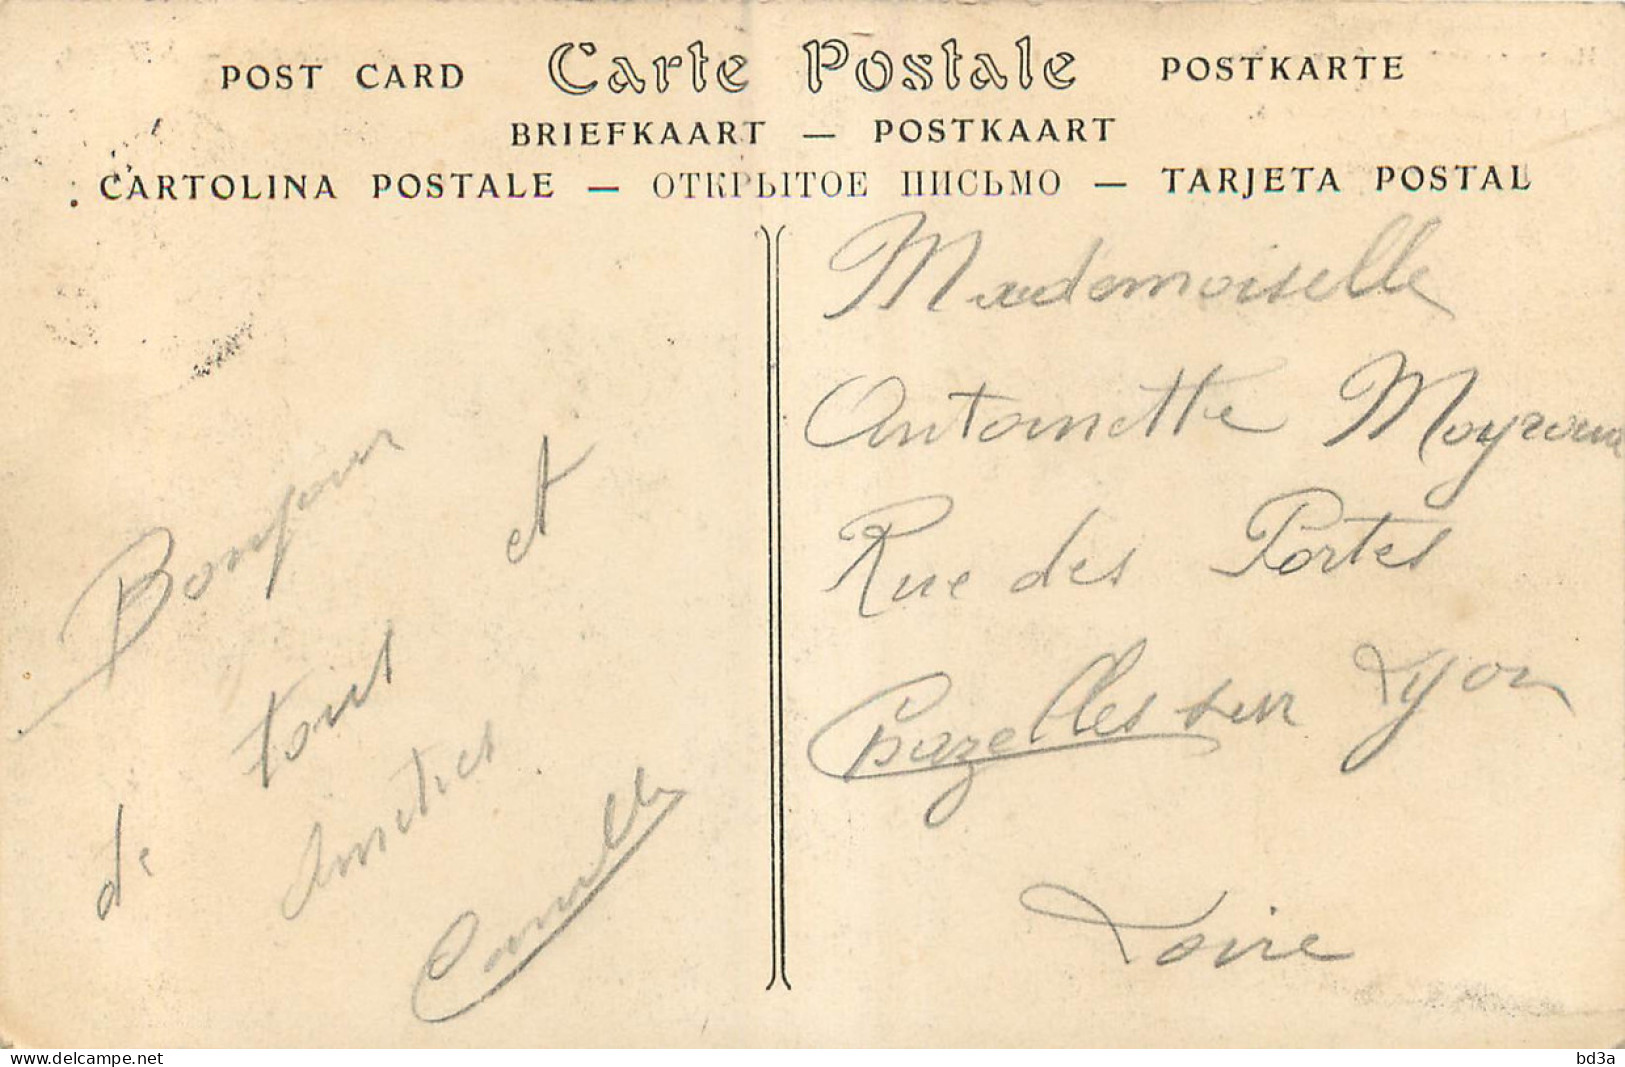 POST CARD Carte Postale POSTKARTE
BRIEFKAART — POSTKAART
CARTOLINA POSTALE — ОТКРЫТОЕ ПИСЬМО — TARJETA POSTAL
Bonjour
de tous et
Amitiés
Camille
Mademoiselle
Antoinette
Rue des Portes
Chazelles sur Lyon
Loire
www.delcampe.net
bd3a